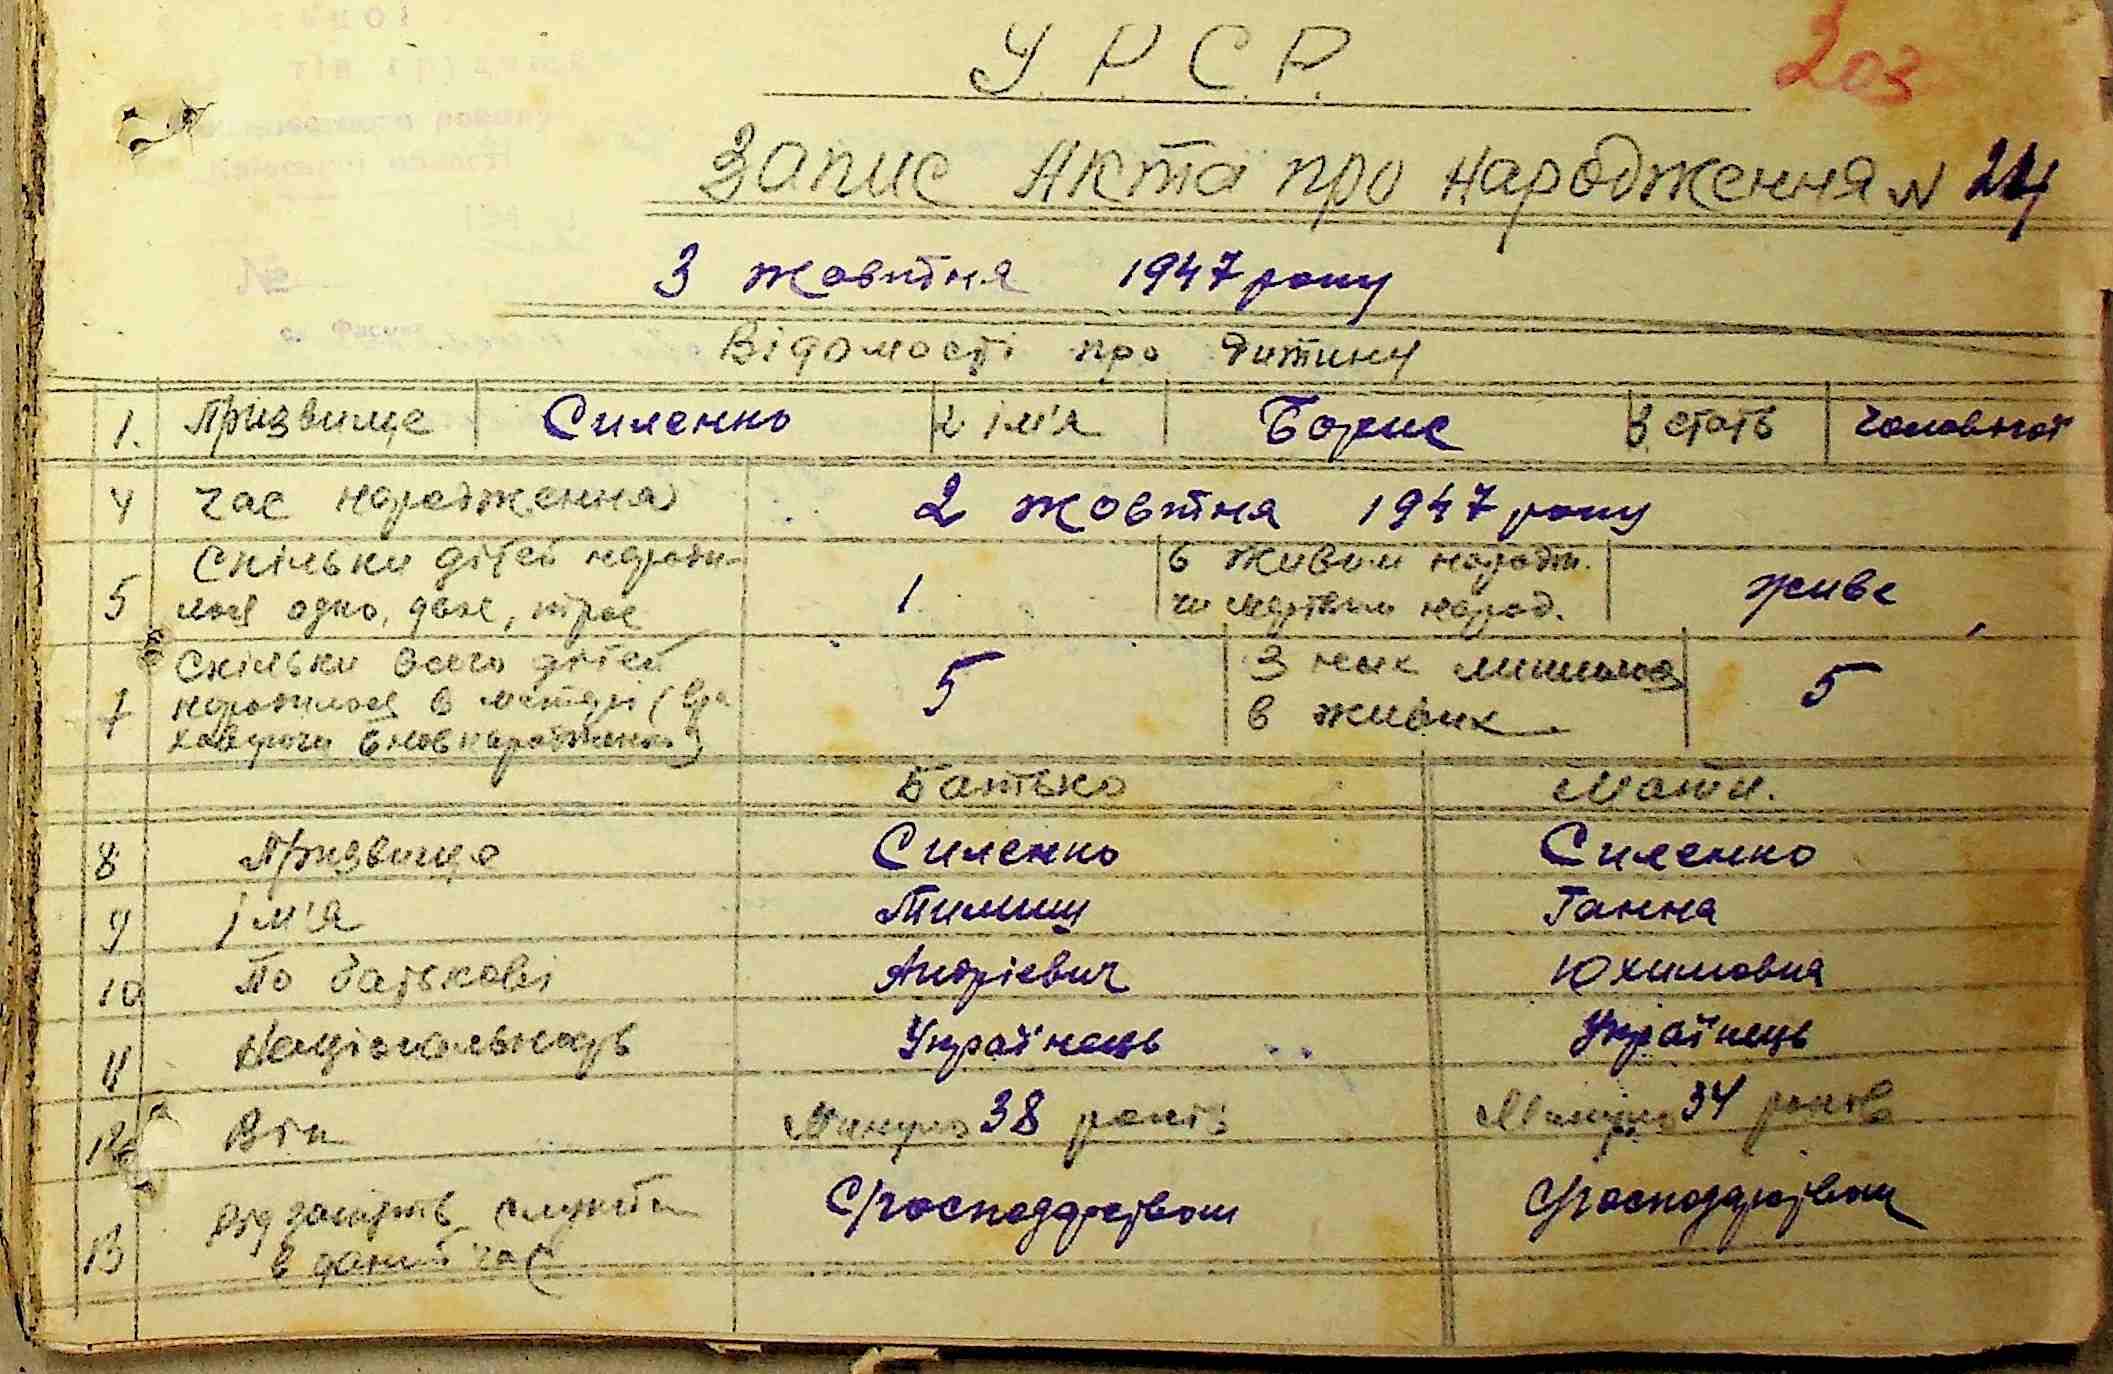 У.Р.С.Р.
203
Запис Акта про народження N 24
3 жовтня 1947 року
Відомості про дитину
1. Прізвище Силенко 2 ім'я Борис 3 стать чоловічої
4 час народження 2 жовтня 1947 року
5 Скільки дітей народи- 1 6 живим народж. живе
лося одно, двоє, троє чи мертвим народ.
7 Скільки всього дітей 5 З них лишилося 5
народилося в матері (вра в живих
ховуючи вновнародженого)
Батько Мати.
8 Прізвище Силенко Силенко
9 Ім'я Тимиш Ганна
10 По батькові Андрієвич Юхимовна
11 Національність Українець Українець
12 Вік Минуло 38 років Минуло 34 років
13 Рід занять служби С/господарством С/господарством
в даний час